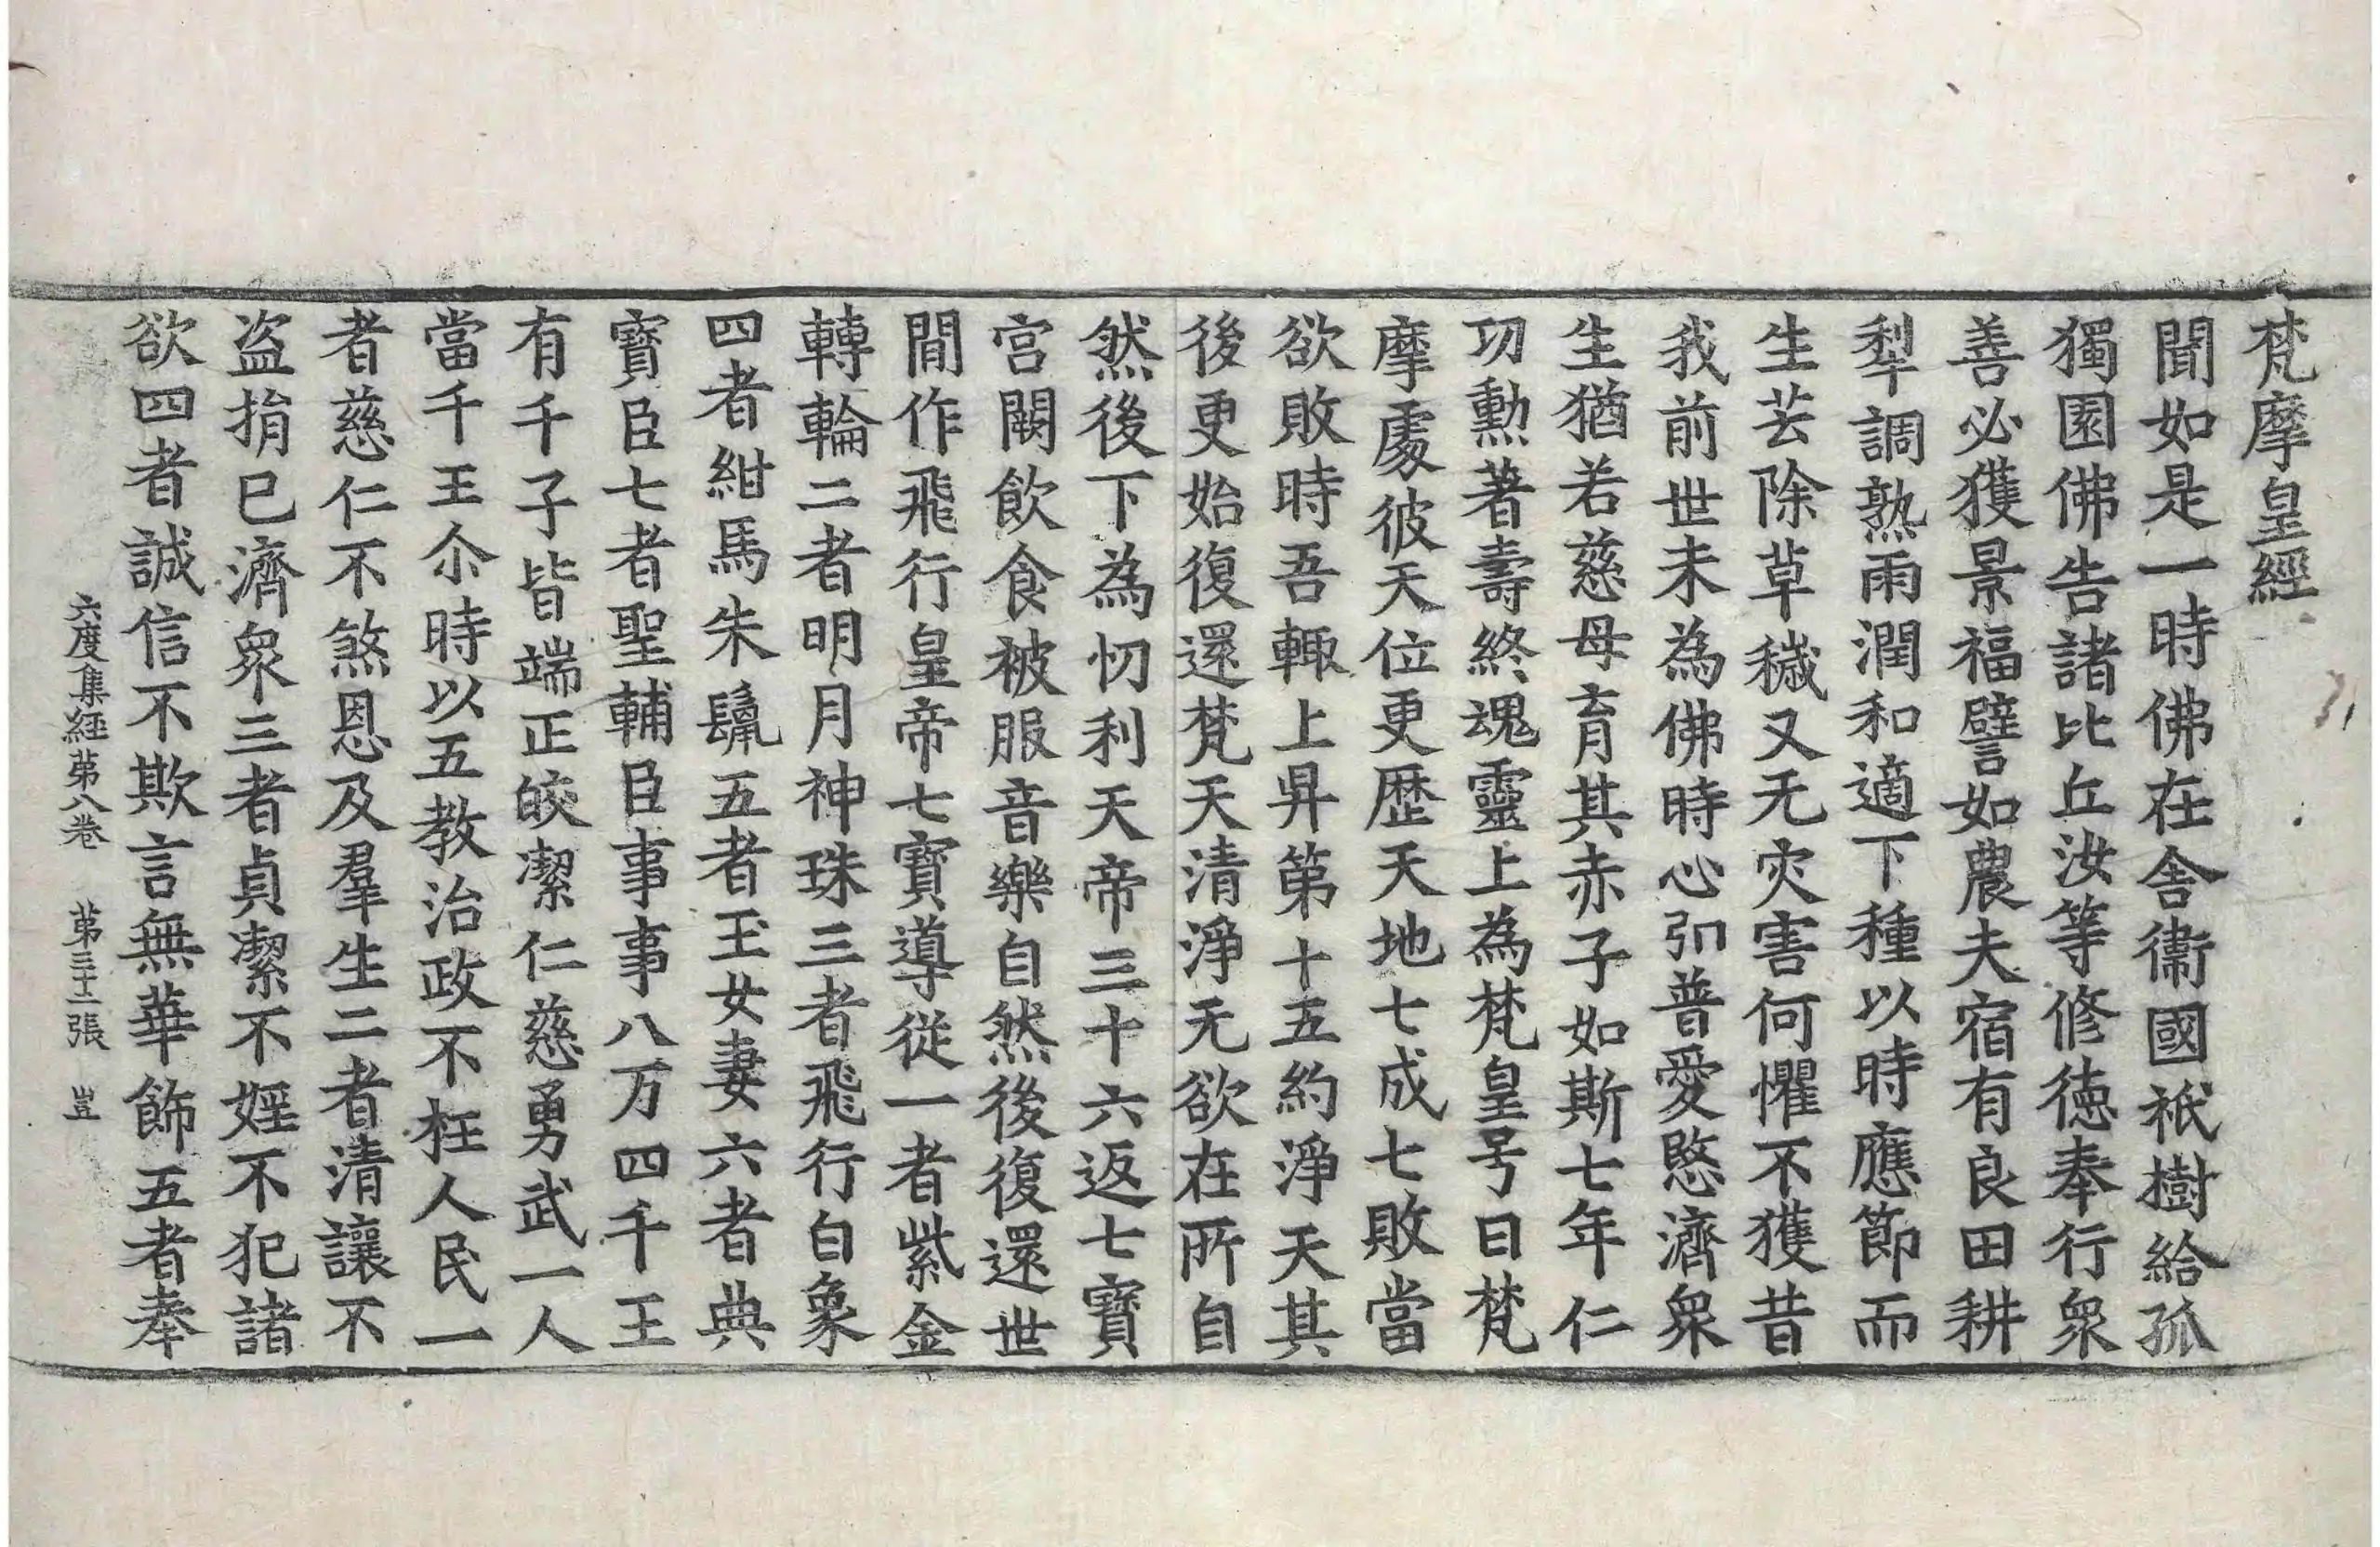 梵摩皇經
聞如是一時佛在舎衛國祇樹給孤
獨園佛告諸比丘汝等修徳奉行衆
善必獲景福譬如農夫宿有良田耕
犁調熟雨潤和適下種以時應節而
生芸除草穢又无灾害何懼不獲昔
我前世未為佛時心弘普愛愍濟衆
生猶若慈母育其赤子如斯七年仁
功勲著壽終魂靈上為梵皇号曰梵
摩處彼天位更歴天地七成七敗當
欲敗時吾輙上昇第十五約淨天其
後更始復還梵天清淨无欲在所自
然後下為忉利天帝三十六返七寶
宮闕飲食被服音樂自然後復還世
間作飛行皇帝七寶導従一者紫金
轉輪二者明月神珠三者飛行白象
四者紺馬朱鬣五者玉女妻六者典
寶臣七者聖輔臣事事八万四千王
有千子皆端正皎潔仁慈勇武一人
當千王尒時以五教治政不枉人民一
者慈仁不煞恩及羣生二者清讓不
盗捐已濟衆三者貞潔不婬不犯諸
欲四者誠信不欺言無華飾五者奉
六度集經苐八卷　苐三十二張　豈